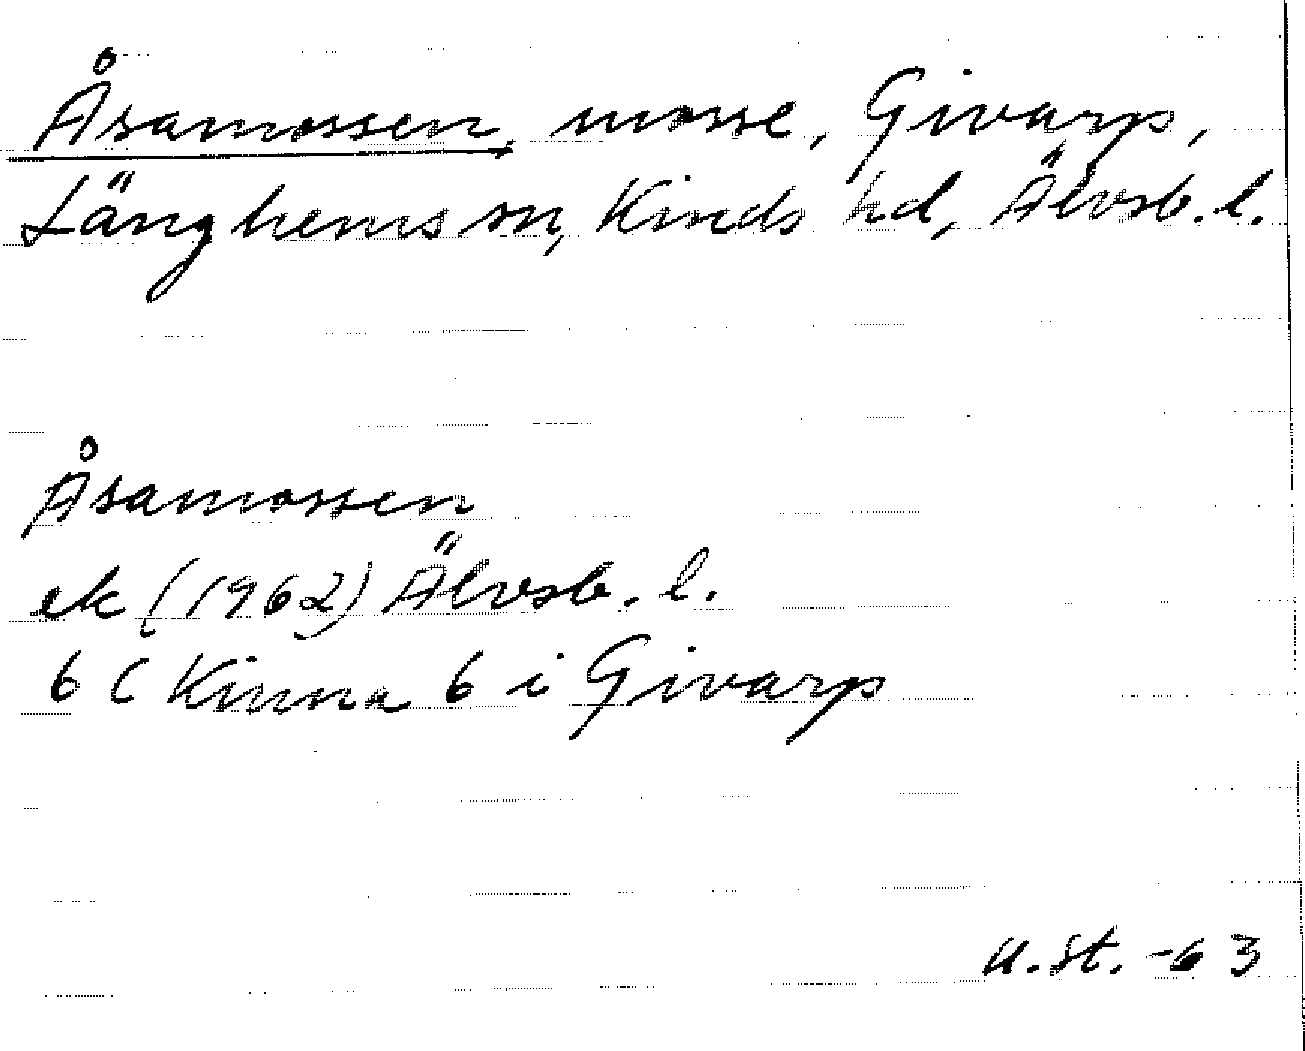 Åsamossen, mosse, Givarp,
Länghems sn, Kinds hd, Älvsb. l.
Åsamossen
ek (1962) Älvsb. l.
6 C Kinna 6 i Givarp
U.St. -63